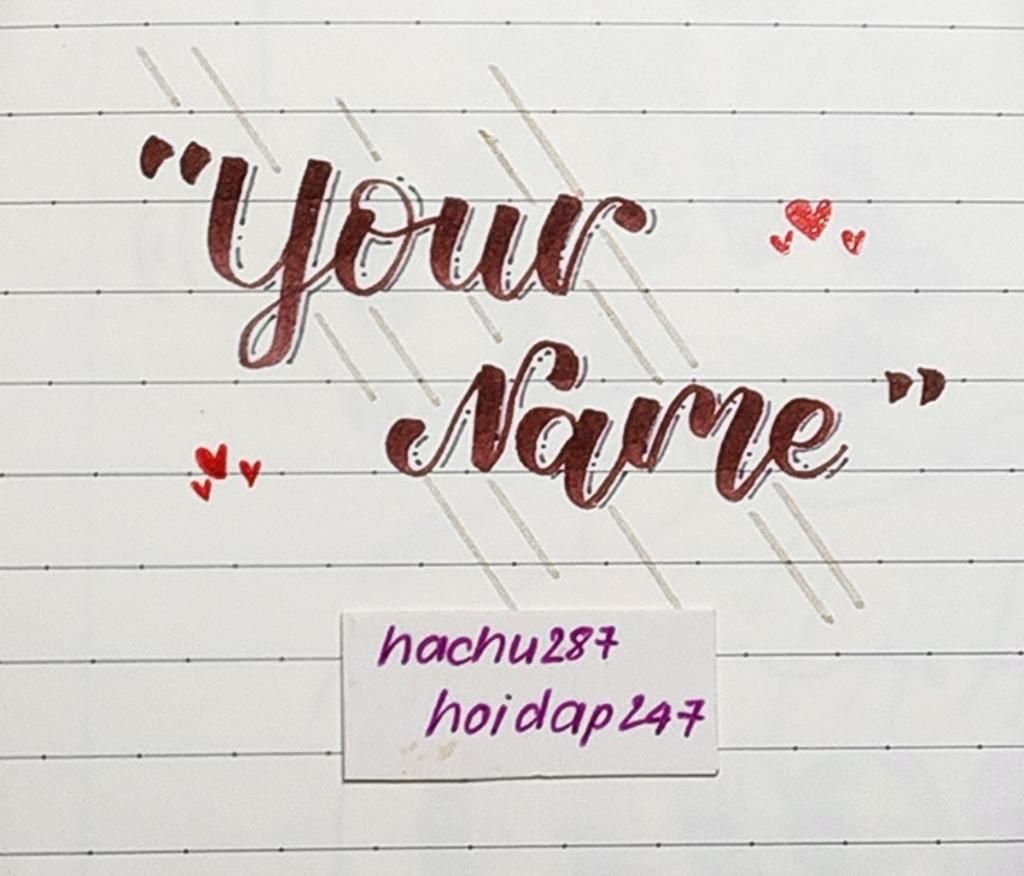 "Your
Name"
hachu287
hoidap247